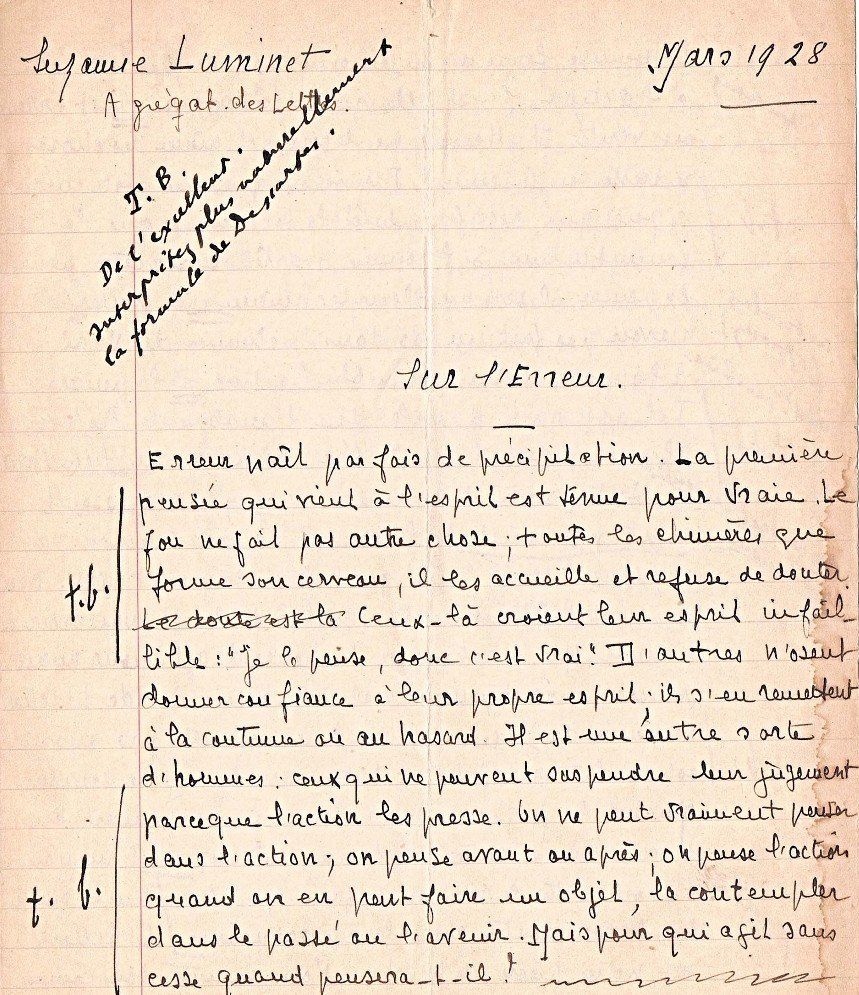 Suzanne Luminet
Mars 1928
Agrégat. des Lettres.
T. B.
De l'excellent.
Interprétez plus naturellement
la formule de Descartes.
Sur l'Erreur.
Erreur naît parfois de précipitation. La première
pensée qui vient à l'esprit est tenue pour vraie. Le
fou ne fait pas autre chose ; toutes les chimères que
t.b.
forme son cerveau, il les accueille et refuse de douter.
Le doute est la Ceux-là croient leur esprit infail-
lible : "je le pense, donc c'est vrai." D'autres n'osent
donner confiance à leur propre esprit ; ils s'en remettent
à la coutume ou au hasard. Il est une autre sorte
d'hommes : ceux qui ne peuvent suspendre leur jugement
parceque l'action les presse. On ne peut vraiment penser
dans l'action ; on pense avant ou après ; on pense l'action
t. b.
quand on en peut faire un objet, la contempler
dans le passé ou l'avenir. Mais pour qui agit sans
cesse quand pensera-t-il !